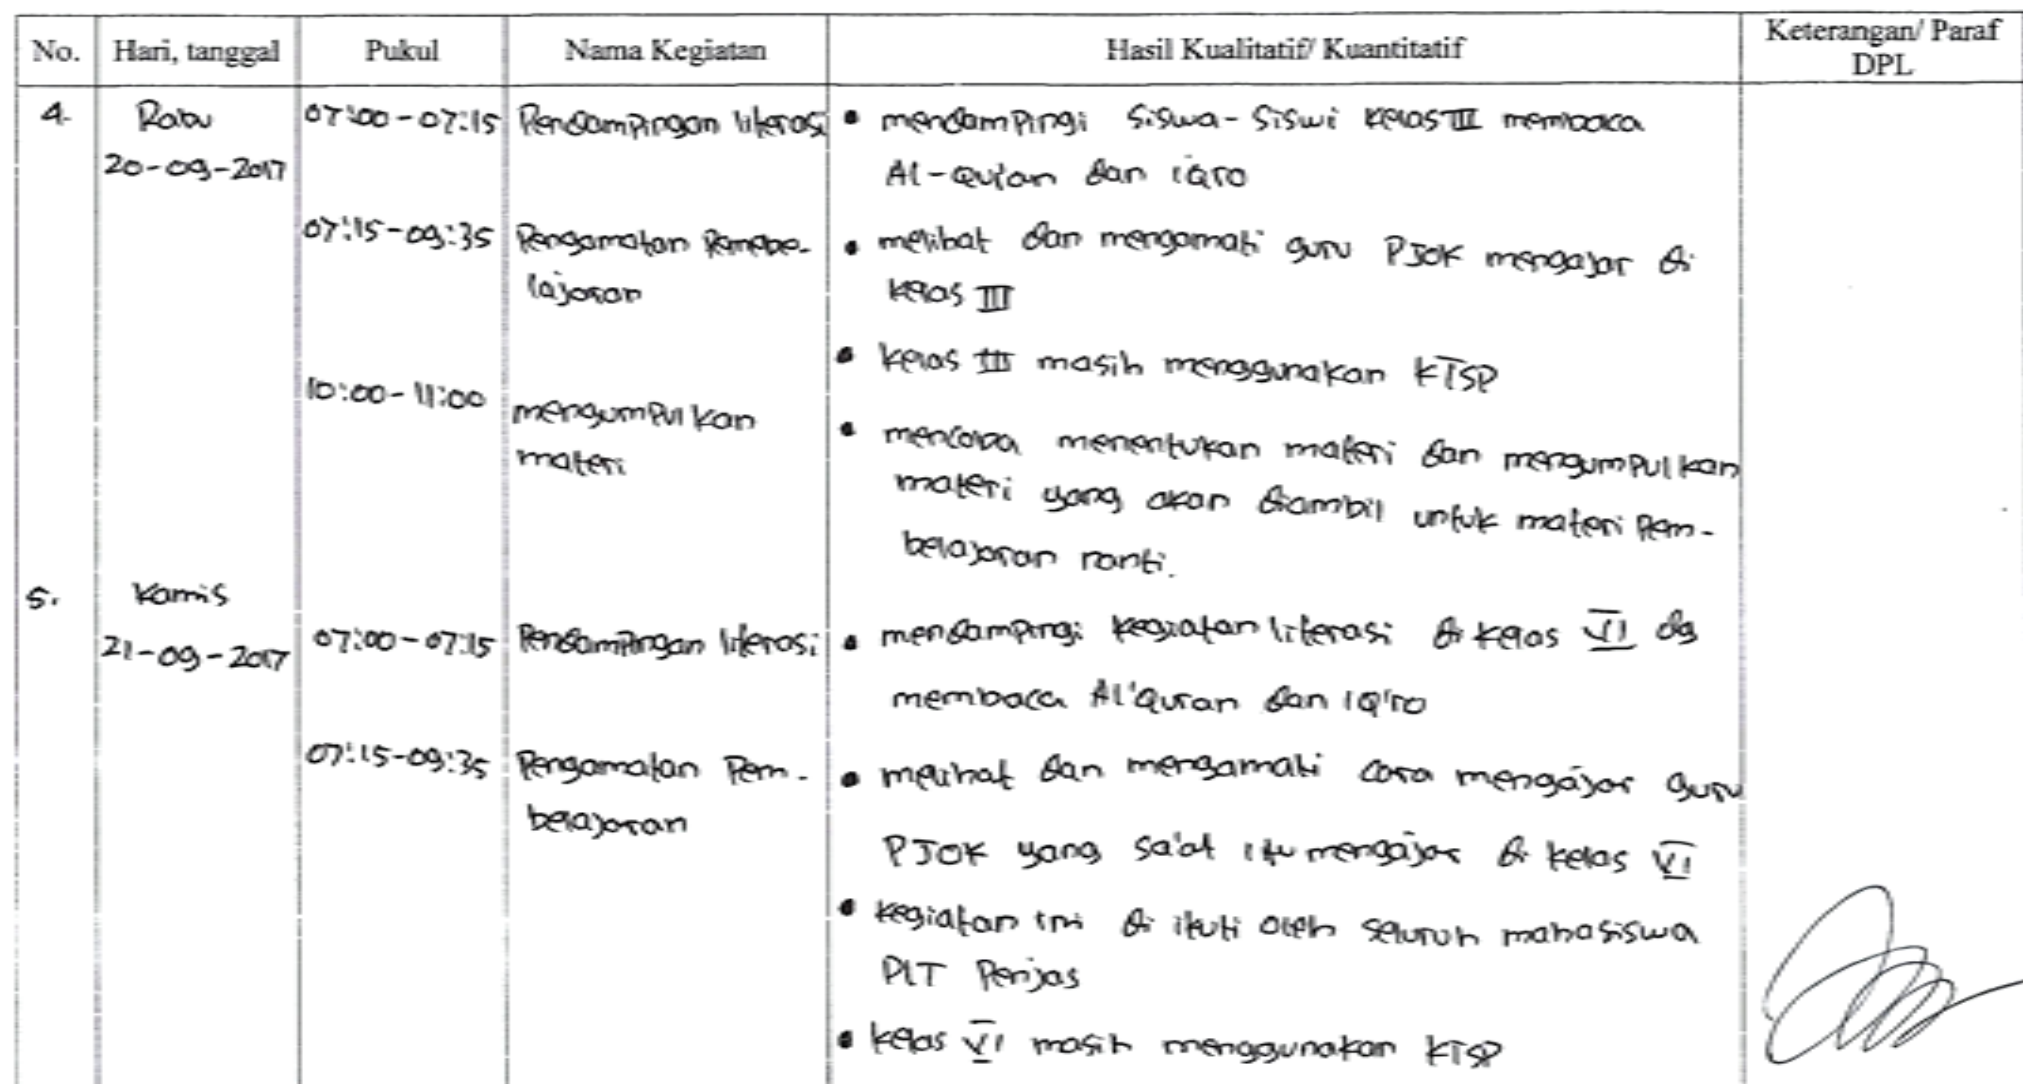 No. Hari, tanggal Pukul Nama Kegiatan Hasil Kualitatif/ Kuantitatif Keterangan/ Paraf
DPL
4. Rabu 07:00-07:15 Pendampingan literasi • mendampingi siswa-siswi kelas III membaca
20-09-2017 Al-Qur'an dan iqro
07:15-09:35 Pengamatan Pembe- • melihat dan mengamati guru PJOK mengajar di
lajaran kelas III
• kelas III masih menggunakan KTSP
10:00-11:00 mengumpulkan • mencoba menentukan materi dan mengumpulkan
materi materi yang akan diambil untuk materi Pem-
belajaran nanti.
5. Kamis
21-09-2017 07:00-07:15 Pendampingan literasi • mendampingi kegiatan literasi di kelas VI dg
membaca Al'Quran dan IQ'ro
07:15-09:35 Pengamatan Pem- • melihat dan mengamati cara mengajar guru
belajaran PJOK yang sa'at itu mengajar di kelas VI
• kegiatan ini di ikuti oleh seluruh mahasiswa
PLT Penjas
• kelas VI masih menggunakan KTSP